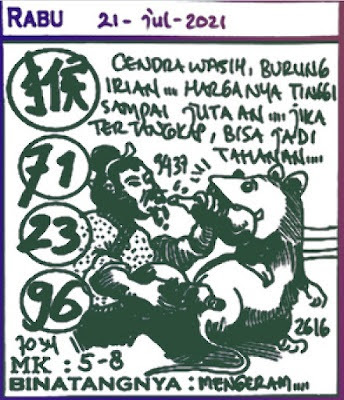 RABU 21-jul-2021
猴
CENDRAWASIH, BURUNG
IRIAN... HARGANYA TINGGI
SAMPAI JUTAAN.... JIKA
TERTANGKAP, BISA JADI
TAHANAN....
71
9437
23
96
2616
7034
MK : 5-8
BINATANGNYA : MENGERAM....